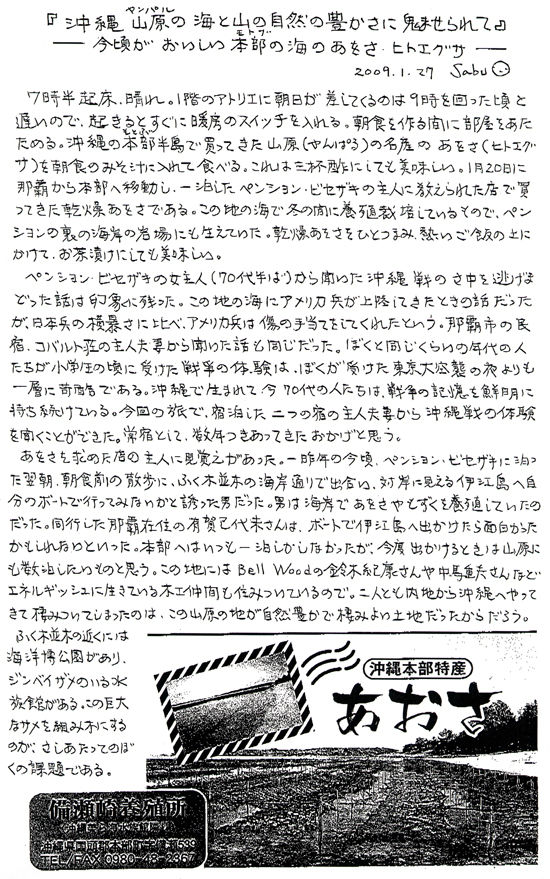 『沖縄 山原の海と山の自然の豊かさに魅せられて』
ヤンバル
― 今頃が おいしい 本部の海のあをさ・ヒトエグサ ―
モトブ
2009.1.27 Sabu
7時半起床、晴れ。1階のアトリエに朝日が差してくるのは9時を回った頃と
遅いので、起きるとすぐに暖房のスイッチを入れる。朝食を作る間に部屋をあた
ためる。沖縄の本部半島で買ってきた山原(やんばる)の名産の あをさ(ヒトエグ
サ)を朝食のみそ汁に入れて食べる。これは三杯酢にしても美味しい。1月20日に
那覇から本部へ移動し、一泊したペンション・ビセザキの主人に教えられた店で買
ってきた乾燥あをさである。この地の海で冬の間に養殖栽培しているもので、ペン
ションの裏の海岸の岩場にも生えていた。乾燥あをさをひとつまみ、熱いご飯の上に
かけて、お茶漬けにしても美味しい。
ペンション・ビセザキの女主人(70代半ば)から聞いた沖縄戦のさ中を逃げま
どった話は印象に残った。この地の海にアメリカ兵が上陸してきたときの話だった
が、日本兵の横暴さに比べ、アメリカ兵は傷の手当てをしてくれたという。那覇市の民
宿、コバルト荘の主人夫妻から聞いた話も同じだった。ぼくと同じくらいの年代の人
たちが小学生の頃に受けた戦争の体験は、ぼくが受けた東京大空襲の夜よりも
一層に苛酷である。沖縄で生まれて今70代の人たちは、戦争の記憶を鮮明に
持ち続けている。今回の旅で、宿泊した二つの宿の主人夫妻から沖縄戦の体験
を聞くことができた。常宿として、数年つきあってきたおかげと思う。
あをさを求めた店の主人に見覚えがあった。一昨年の今頃、ペンション・ビセザキに泊っ
た翌朝、朝食前の散歩に、ふく木並木の海岸通りで出合い、対岸に見える伊江島へ自
分のボートで行ってみないかと誘った男だった。男は海岸であをさやもずくを養殖していたの
だった。同行した那覇在住の有賀己代末さんは、ボートで伊江島へ出かけたら面白かった
かもしれないといった。本部へはいつも一泊しかしなかったが、今度出かけるときは山原に
も数泊したいものと思う。この地にはBell Woodの鈴木紀康さんや中馬進夫さんなど
エネルギッシュに生きている木工仲間も住みついているので。二人とも内地から沖縄へやって
きて棲みついてしまったのは、この山原の地が自然豊かで棲みよい土地だったからだろう。
ふく木並木の近くには
海洋博公園があり、
ジンベイザメのいる水
族館がある。この巨大
なサメを組み木にする
のが、さしあたってのぼ
くの課題である。
沖縄本部特産
あおさ
備瀬崎養殖所
TEL/FAX 0980-48-2367